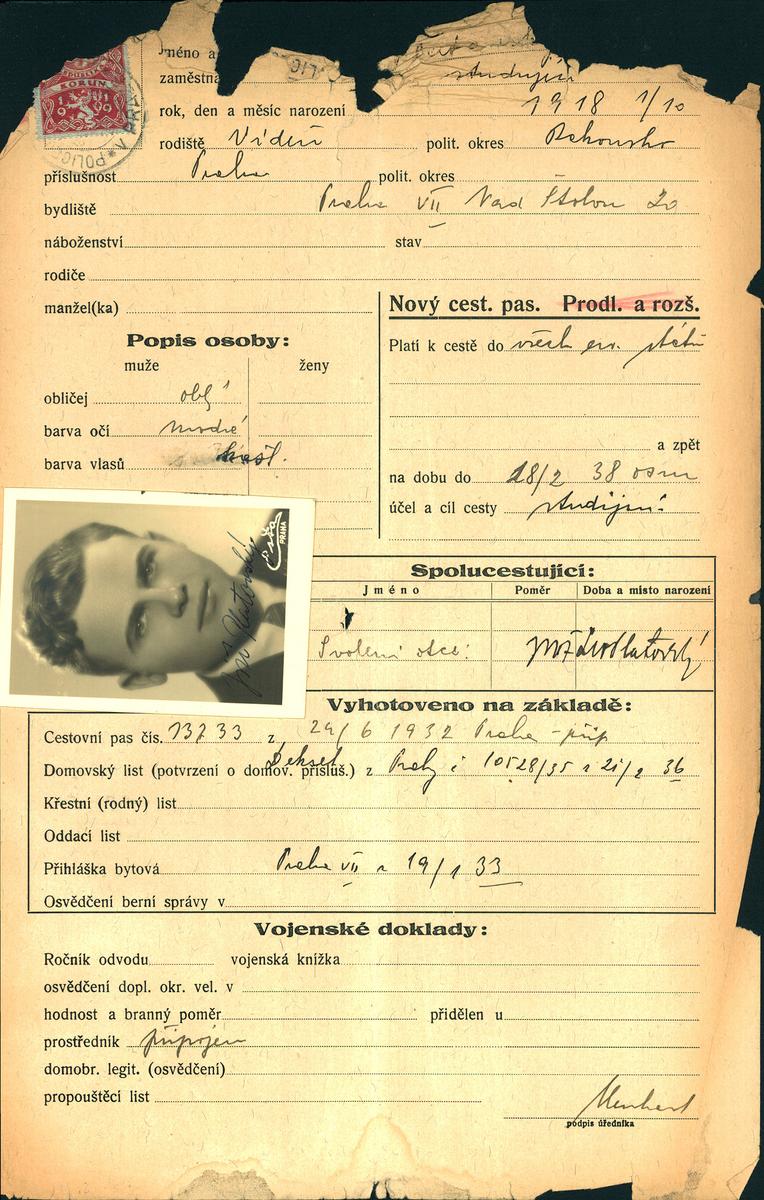 KORUN
Jméno a
zaměstná studující
rok, den a měsíc narození 1918 1/10
rodiště Vídeň polit. okres Rakousko
příslušnost Praha polit. okres
bydliště Praha VII Nad Štolou 20
náboženství stav
rodiče
manžel(ka)
Nový cest. pas. Prodl. a rozš.
Popis osoby:
muže ženy
obličej obl.
barva očí modré
barva vlasů kašt.
Platí k cestě do všech evr. států
a zpět
na dobu do 28/2 38 osm
účel a cíl cesty studijní
Esta
PRAHA
Spolucestující:
Jméno Poměr Doba a místo narození
Svolení otce:
Vyhotoveno na základě:
Cestovní pas čís. 13733 z 24/6 1932 Praha
Domovský list (potvrzení o domov. přísluš.) z Prahy č 10528/35 z 21/2 36
Křestní (rodný) list
Oddací list
Přihláška bytová Praha VII z 19/1 33
Osvědčení berní správy v
Vojenské doklady:
Ročník odvodu vojenská knížka
osvědčení dopl. okr. vel. v
hodnost a branný poměr přidělen u
prostředník připojen
domobr. legit. (osvědčení)
propouštěcí list
podpis úředníka